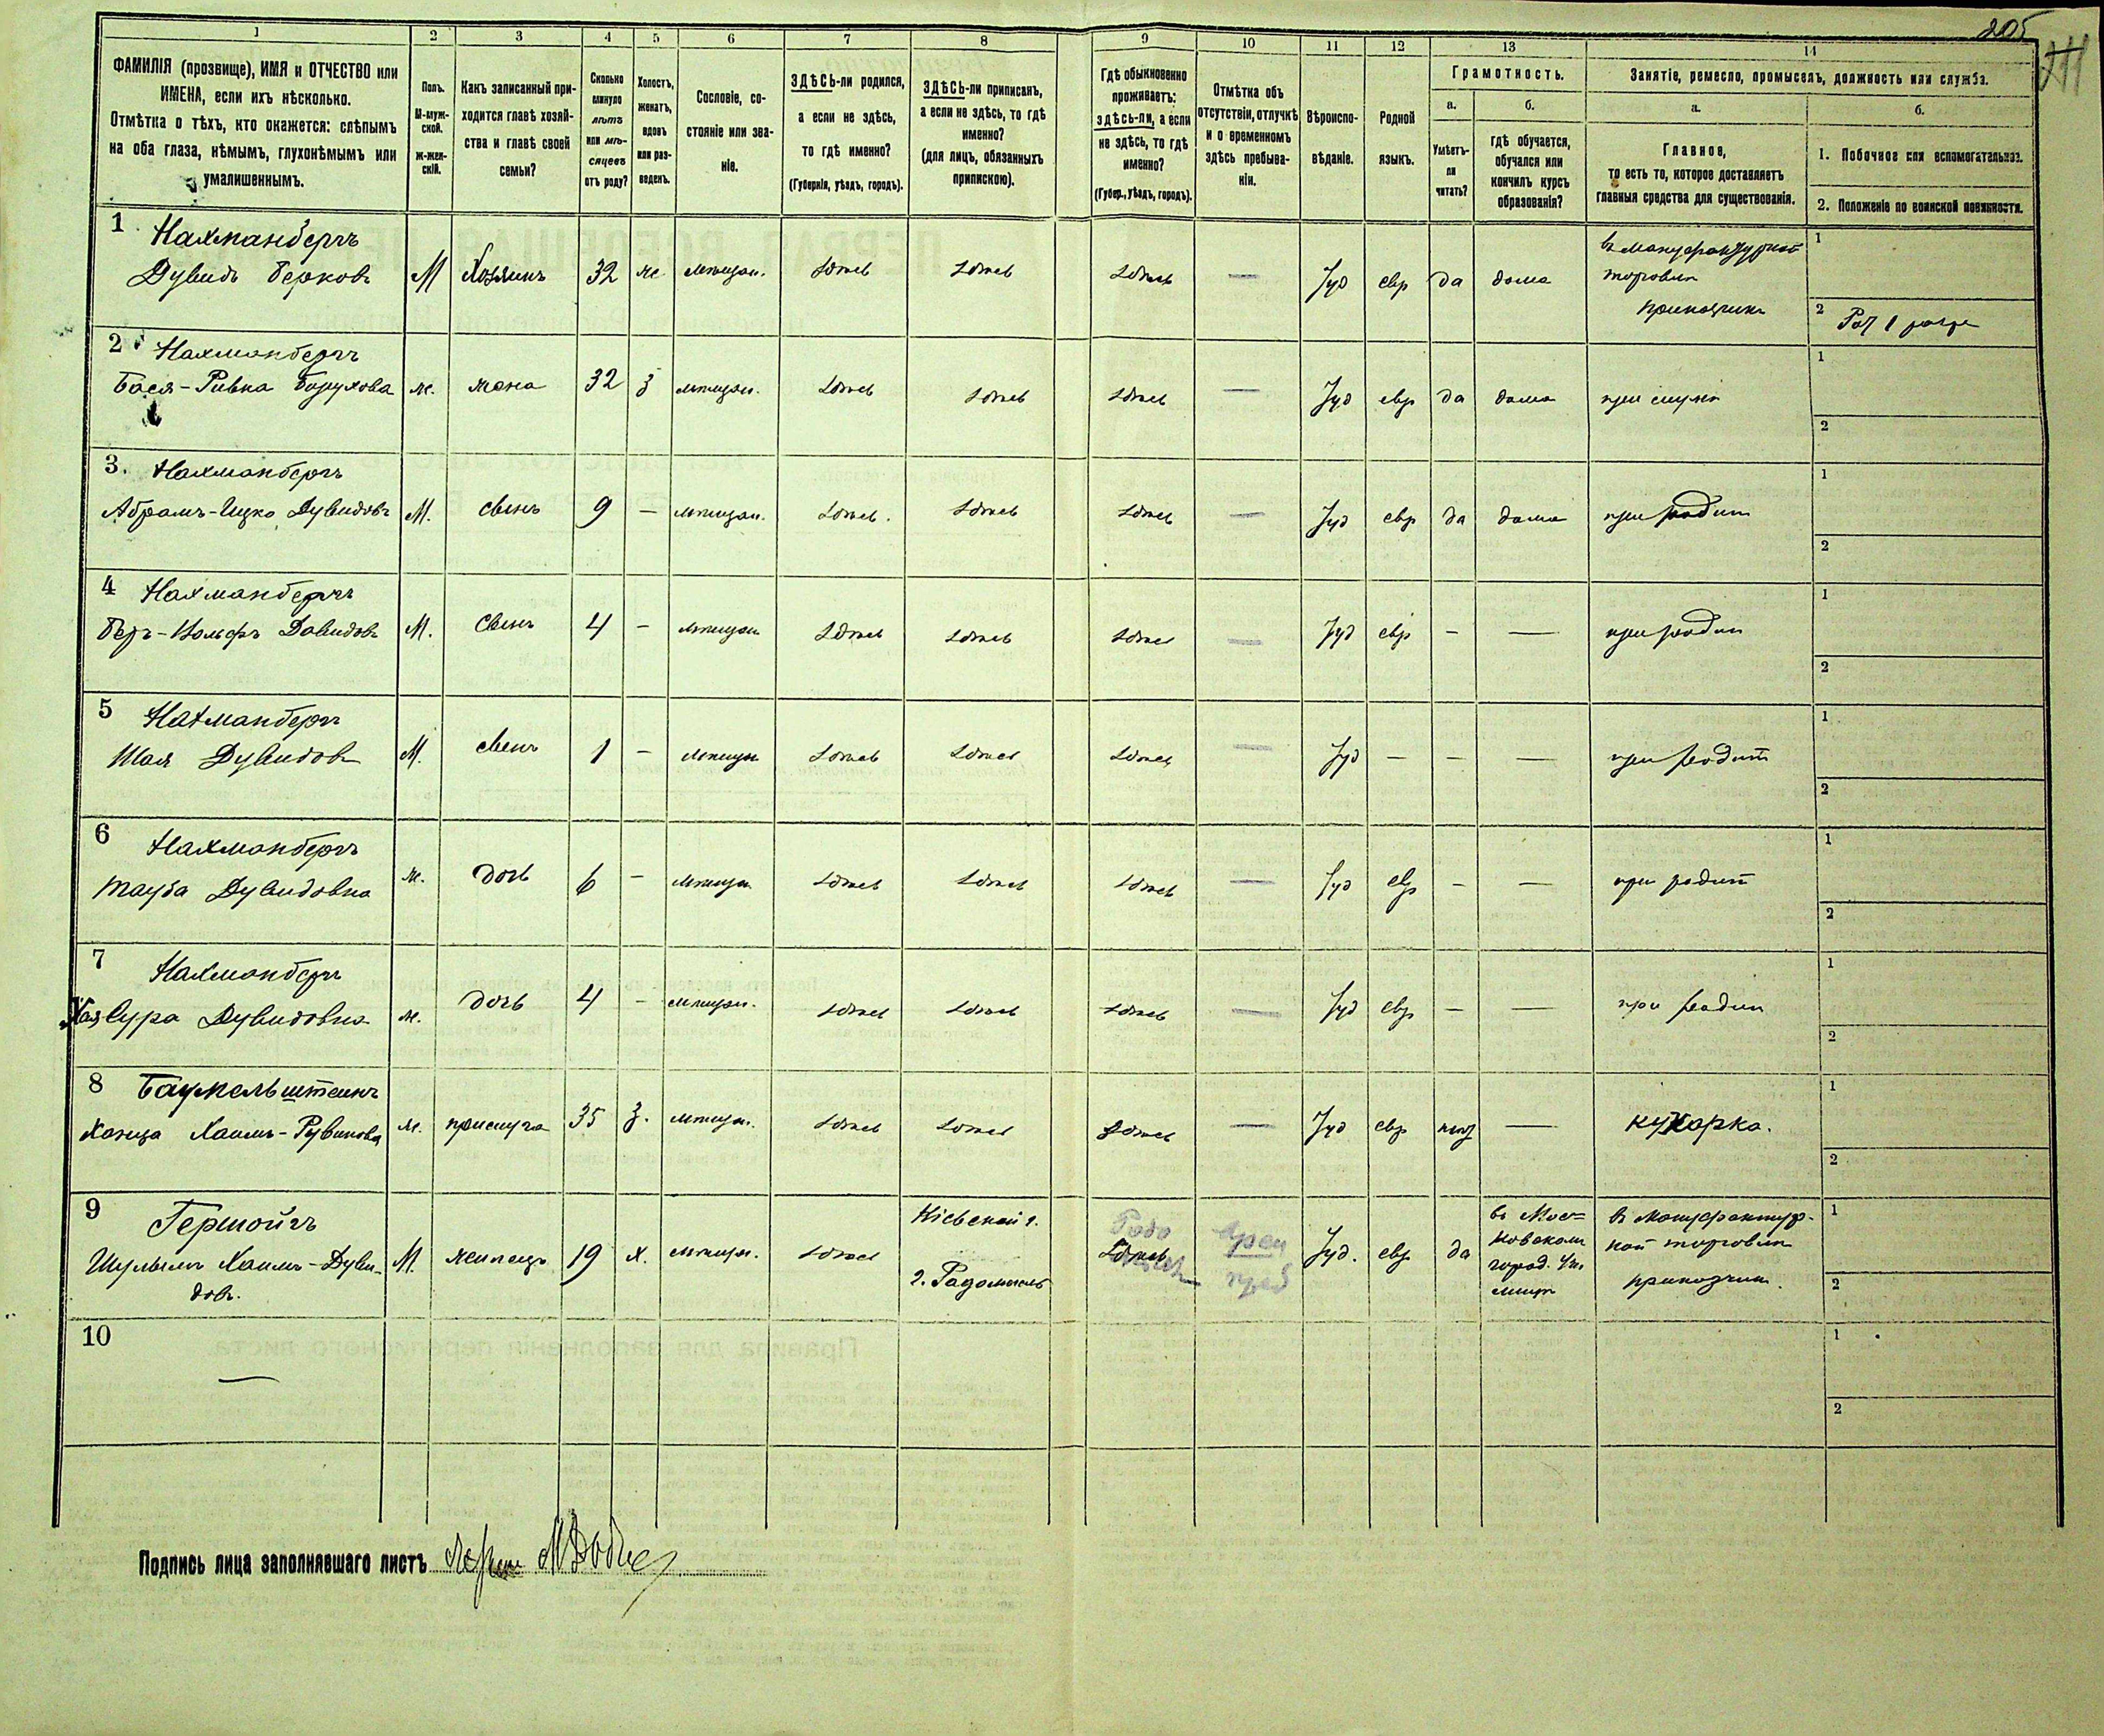 205
1 2 3 4 5 6 7 8 9 10 11 12 13 14
ФАМИЛІЯ (прозвище), ИМЯ и ОТЧЕСТВО или
ИМЕНА, если ихъ нѣсколько.
Отмѣтка о тѣхъ, кто окажется: слѣпымъ
на оба глаза, нѣмымъ, глухонѣмымъ или
умалишеннымъ.
Полъ.
М-муж-
ской.
Ж-жен-
скій.
Какъ записанный при-
ходится главѣ хозяй-
ства и главѣ своей
семьи?
Сколько
минуло
лѣтъ
или мѣ-
сяцевъ
отъ роду?
Холостъ,
женатъ,
вдовъ
или раз-
веденъ.
Сословіе, со-
стояніе или зва-
ніе.
ЗДѢСЬ-ли родился,
а если не здѣсь,
то гдѣ именно?
(Губернія, уѣздъ, городъ).
ЗДѢСЬ-ли приписанъ,
а если не здѣсь, то гдѣ
именно?
(для лицъ, обязанныхъ
припискою).
Гдѣ обыкновенно
проживаетъ:
здѣсь-ли, а если
не здѣсь, то гдѣ
именно?
(Губер., уѣздъ, городъ).
Отмѣтка объ
отсутствіи, отлучкѣ
и о временномъ
здѣсь пребыва-
ніи.
Вѣроиспо-
вѣданіе.
Родной
языкъ.
Грамотность.
а.
Умѣетъ-
ли
читать?
б.
гдѣ обучается,
обучался или
кончилъ курсъ
образованія?
Занятіе, ремесло, промыселъ, должность или служба.
а.
Главное,
то есть то, которое доставляетъ
главныя средства для существованія.
б.
1. Побочное или вспомогательное.
2. Положеніе по воинской повинности.
1 Нахманбергъ
Дувидъ Берковъ М Хозяинъ 32 ж. мѣщан. здѣсь здѣсь здѣсь — Іуд евр да дома
торговли
приказчик
1
2
2 Нахманбергъ
Бася-Ривка Борухова ж. жена 32 з мѣщан. здѣсь здѣсь здѣсь — Іуд евр да дома при мужѣ
1
2
3. Нахманбергъ
Абрамъ-Ицко Дувидовъ М. сынъ 9 — мѣщан. здѣсь. здѣсь здѣсь — Іуд евр да дома при родит
1
2
4 Нахманбергъ
Беръ-Вольфъ Давидовъ М. Сынъ 4 — мѣщан здѣсь здѣсь здѣсь — Іуд евр — — при родит
1
2
5 Нахманбергъ
Шая Дувидовъ М. сынъ 1 — мѣщан здѣсь здѣсь здѣсь — Іуд — — — при родит
1
2
6 Нахманбергъ
Тауба Дувидовна ж. дочь 6 — мѣщан здѣсь здѣсь здѣсь — Іуд евр — — при родит
1
2
7 Нахманбергъ
Хая Сура Дувидовна ж. дочь 4 — мѣщан. здѣсь здѣсь здѣсь — Іуд евр — — при родит
1
2
8
Хаимъ-Рувинова ж. прислуга 35 з. мѣщан. здѣсь здѣсь здѣсь — Іуд евр нѣт — кухарка.
1
2
9 Кіевской г.
Хаимъ-Дуви- М. жилецъ 19 х. мѣщан. здѣсь г. Радомысль здѣсь Врем преб Іуд. евр да
довъ.
въ Мос=
ковском
город.
въ мануфактур-
ной торговли
приказчик
1
2
10
—
1
2
Подпись лица заполнявшаго листъ